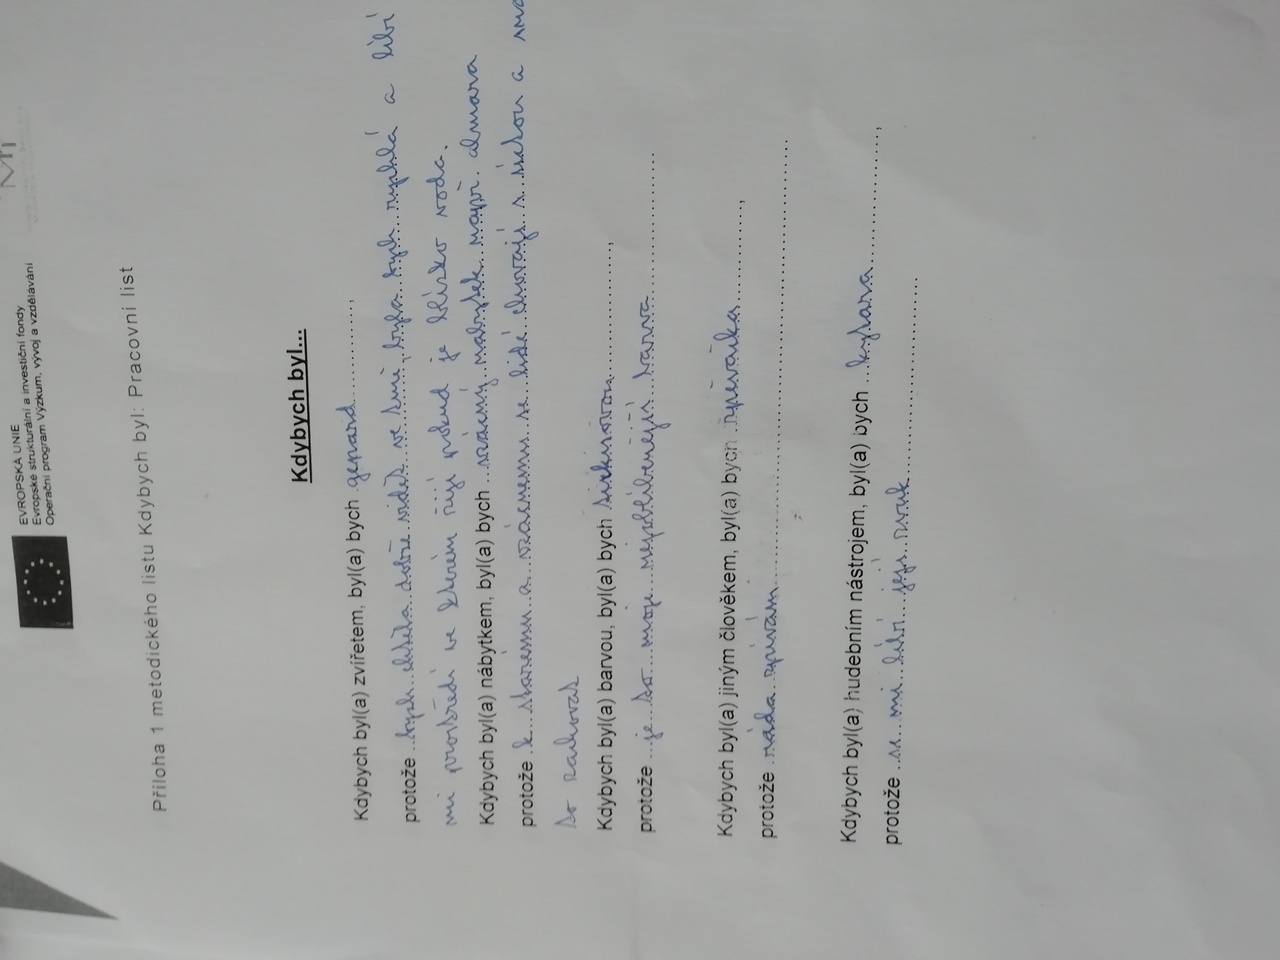 EVROPSKÁ UNIE
Evropské strukturální a investiční fondy
Operační program Výzkum, vývoj a vzdělávání
Příloha 1 metodického listu Kdybych byl: Pracovní list
Kdybych byl...
Kdybych byl(a) zvířetem, byl(a) bych gepard,
protože bych chtěla dobře vidět ve tmě, byla bych rychlá a líbí
mi prostředí ve kterém žijí pokud je blízko voda.
Kdybych byl(a) nábytkem, byl(a) bych vzácný nábytek např. almara
protože k starému a vzácnemu se lidé chovají s úctou a
to zachovat
Kdybych byl(a) barvou, byl(a) bych tirkisovou,
protože je to moje nejoblíbenější barva
Kdybych byl(a) jiným člověkem, byl(a) bych zpěvačka,
protože ráda zpívám
Kdybych byl(a) hudebním nástrojem, byl(a) bych kytara,
protože se mi líbí její zvuk